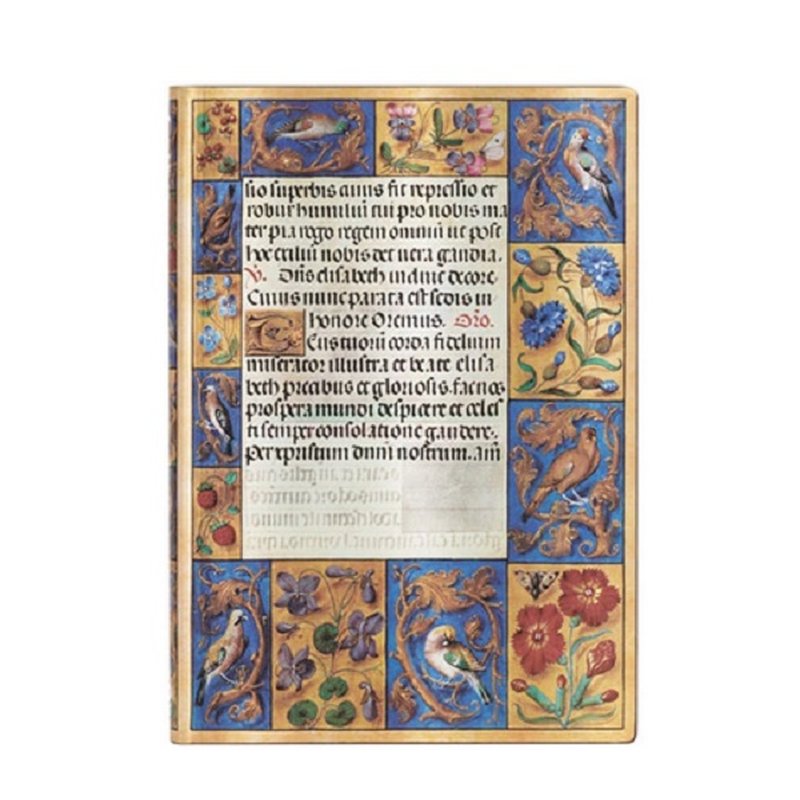 sio superbis cuius fit repressio et
robur humiliū tui pro nobis ma
ter pia rogo regem omniū ut post
hoc exiliū nobis det uera gaudia.
V. Dn̄s elisabeth induit decore.
Cuius nunc parata est sedis in
honore Oremus. Or̄o.
Eustuoriū corda fidelium
miserator illustra et beate elisa
beth precibus et gloriosis. fac nos
prospera mundi despicere et celes
ti semper consolatione gaudere.
Per xpristum dnm̄ nostrum. am̄